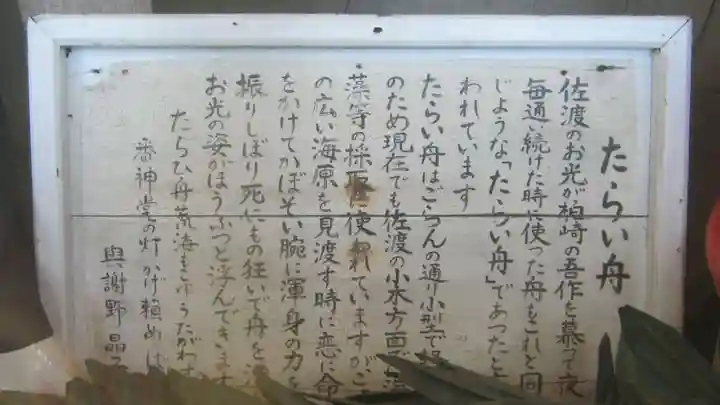 たらい舟
・佐渡のお光が柏崎の吾作を慕って夜
毎通い続けた時に使った舟もこれと同
じような「たらい舟」であったと
われています
たらい舟はごらんの通り小型で
のため現在でも佐渡の小木方面で
・藻等の採取に使われていますが
の広い海原を見渡す時に恋に命
をかけてかぼそい腕に渾身の力を
振りしぼり死にもの狂いで舟を
お光の姿がほうふつと浮んできます
たらひ舟荒海もこゆうたがはず
番神堂の灯かげ頼めば
與謝野晶